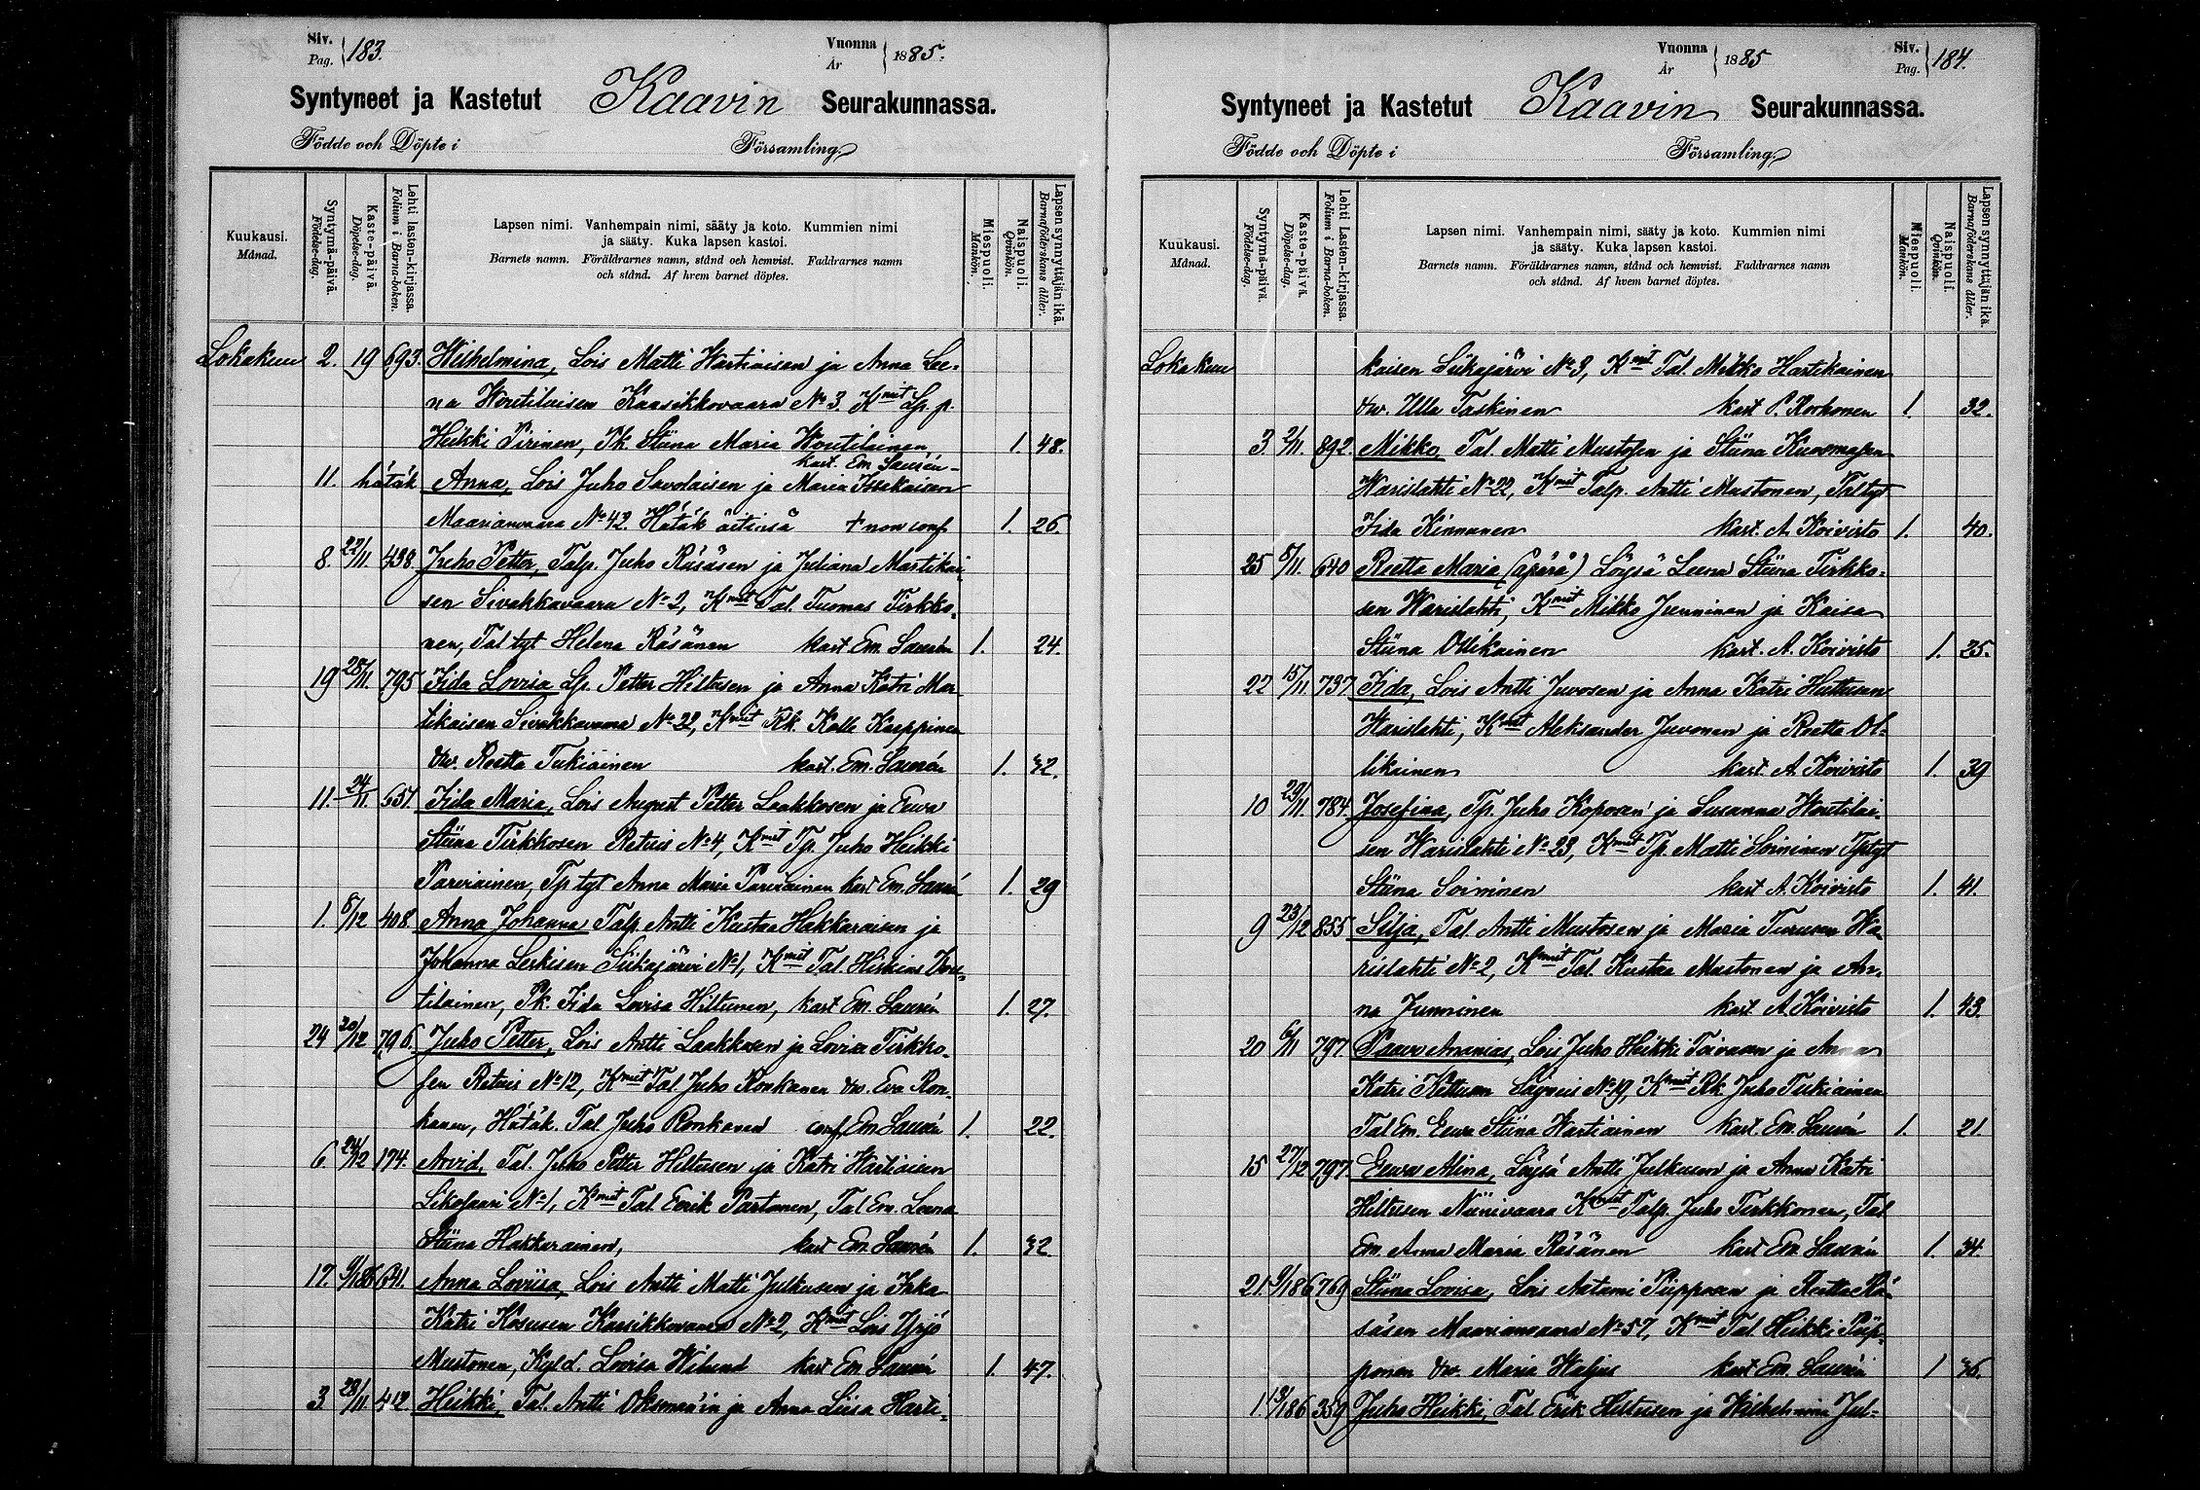 Siv. Pag. 183. Vuonna År 1885.
Syntyneet ja Kastetut Kaavin Seurakunnassa.
Födde och Döpte i Församling
Kuukausi. Månad.
Syntymä-päivä. Födelse-dag.
Kaste-päivä. Döpelse-dag.
Lehti lasten-kirjassa. Folium i Barna-boken.
Lapsen nimi. Vanhempain nimi, sääty ja koto. Kummien nimi
ja sääty. Kuka lapsen kastoi.
Barnets namn. Föräldrarnes namn, stånd och hemvist. Faddrarnes namn
och stånd. Af hvem barnet döptes.
Miespuoli. Mankön.
Naispuoli. Qvinkön.
Lapsen synnyttäjän ikä. Barnaföderskans ålder.
Lokakuu 2. 19 693. Wilhelmina, Lois Matti Wartiaisen ja Anna Lee-
na Woutilaisen Kaasikkovaara No 3. Kmit Lp. p.
Heikki Pirinen, Pk. Stiina Maria Woutilainen, 1. 48.
kast. Em. Laurén
11. hätäk Anna, Lois Juho Savolaisen ja Maria Issekaisen
Maarianvaara No 42. Hätäk äitinsä + non conf 1. 26.
8. 22/11. 438. Juho Petter, Talp. Juho Räsäsen ja Juliana Martikai-
sen Sivakkavaara No 2, Kmit Tal. Tuomas Tirkko-
nen, Tal tyt Helena Räsänen kast Em. Laurén 1. 24.
19 28/11. 795 Iida Lovisa Lp. Petter Hiltusen ja Anna Katri Mar
tikaisen Sivakkavaara No 22, Kmit Rk. Kalle Karppinen
vw. Reetta Tukiainen kast. Em. Laurén 1. 32.
11. 24/11. 657. Iida Maria, Lois August Petter Laakkosen ja Eewa
Stiina Tirkkosen Retuis No 4, Kmit Tp. Juho Heikki
Parviainen, Tp tyt Anna Maria Parviainen kast Em. Laurén 1. 29
1. 8/12 408. Anna Johanna Talp. Antti Kustaa Hakkaraisen ja
Johanna Leskisen Siikajärvi No 1, Kmit Tal. Hiskias Wou-
tilainen, Pk. Iida Lovisa Hiltunen, kast Em. Laurén 1. 27.
24 20/12 796. Juho Petter, Lois Antti Laakkosen ja Lovisa Tirkko-
sen Retuis No 12, Kmit Tal. Juho Ronkanen vw. Eva Ron-
kanen, Hätäk. Tal Juho Ronkanen conf Em. Laurén 1. 22.
6. 24/12 174. Arvid, Tal. Juho Petter Hiltusen ja Katri Wartiaisen
No 1, Kmit Tal Eerik Partanen, Tal Em. Leena
Stiina Hakkarainen, kast Em. Laurén 1. 32.
17. 641. Anna Loviisa, Lois Antti Matti Julkusen ja Inka
Katri Kosusen Kaasikkovaara No 2, Kmit Lois Yrjö
Mustonen, Kyl d. Lovisa kast Em. Laurén 1. 47.
3 28/11. 412. Heikki, Tal. Antti Oksman'in ja Anna Liisa Harti-
Siv. Pag. 184. Vuonna År 1885
Syntyneet ja Kastetut Kaavin Seurakunnassa.
Födde och Döpte i Församling
Kuukausi. Månad.
Syntymä-päivä. Födelse-dag.
Kaste-päivä. Döpelse-dag.
Lehti Lasten-kirjassa. Folium i Barna-boken.
Lapsen nimi. Vanhempain nimi, sääty ja koto. Kummien nimi
ja sääty. Kuka lapsen kastoi.
Barnets namn. Föräldrarnes namn, stånd och hemvist. Faddrarnes namn
och stånd. Af hvem barnet döptes.
Miespuoli. Mankön.
Naispuoli. Qvinkön.
Lapsen synnyttäjän ikä. Barnaföderskans ålder.
Lokakuu kaisen Siikajärvi No 3, Kmit Tal. Mikko Hartikainen
vw. Ulla Taskinen kast P. Korhonen 1. 32.
3 2/11 892. Mikko Tal. Matti Mustosen ja Stiina Kuosmasen
Warislahti No 22, Kmit Talp. Antti Mustonen, Tal tyt
Iida Kinnunen kast. A. Koivisto 1. 40.
25 8/11. 640 Reetta Maria (äpärä) Löysä Leena Stiina Tirkko-
sen Warislahti, Kmit Mikko Junninen ja Kaisa
Stiina Ollikainen kast. A. Koivisto 1. 25.
22 15/11 737 Iida, Lois Antti Juvosen ja Anna Katri Huttusen
Warislahti, Kmit Aleksander Juvonen ja Reetta Ol-
likainen kast. A. Koivisto 1. 39
10 29/11. 784. Josefina, Tp. Juho Koposen ja Susanna Woutilai-
sen Warislahti No 23, Kmit Tp. Matti Soininen Tp tyt
Stiina Soininen kast A. Koivisto 1. 41.
9 23/12 855 Silja, Tal. Antti Mustosen ja Maria Turusen Wa-
rislahti No 2, Kmit Tal. Kustaa Mustonen ja An-
na Junninen kast A. Koivisto 1. 43.
20 6/11 797. Paavo Ananias, Lois Juho Heikki Toivasen ja Anna
Katri Kettusen No 19, Kmit Rk. Juho Tukiainen
Tal Em. Eewa Stiina Wartiainen kast. Em. Laurén 1. 21.
15 27/12 797. Eewa Alina, Löysä Antti Julkusen ja Anna Katri
Hiltusen Niinivaara Kmit Talp. Juho Tirkkonen, Tal
Em. Anna Maria Räsänen kast Em. Laurén 1. 34.
21. 769 Stiina Lovisa, Lois Aatami Piipposen ja Reetta Rä-
säsen Maarianvaara No 57, Kmit Tal Heikki Piip-
ponen vw. Maria kast Em. Laurén 1 36.
1. 359 Juho Heikki, Tal Erik Hiltusen ja Wilhelmina Jul-